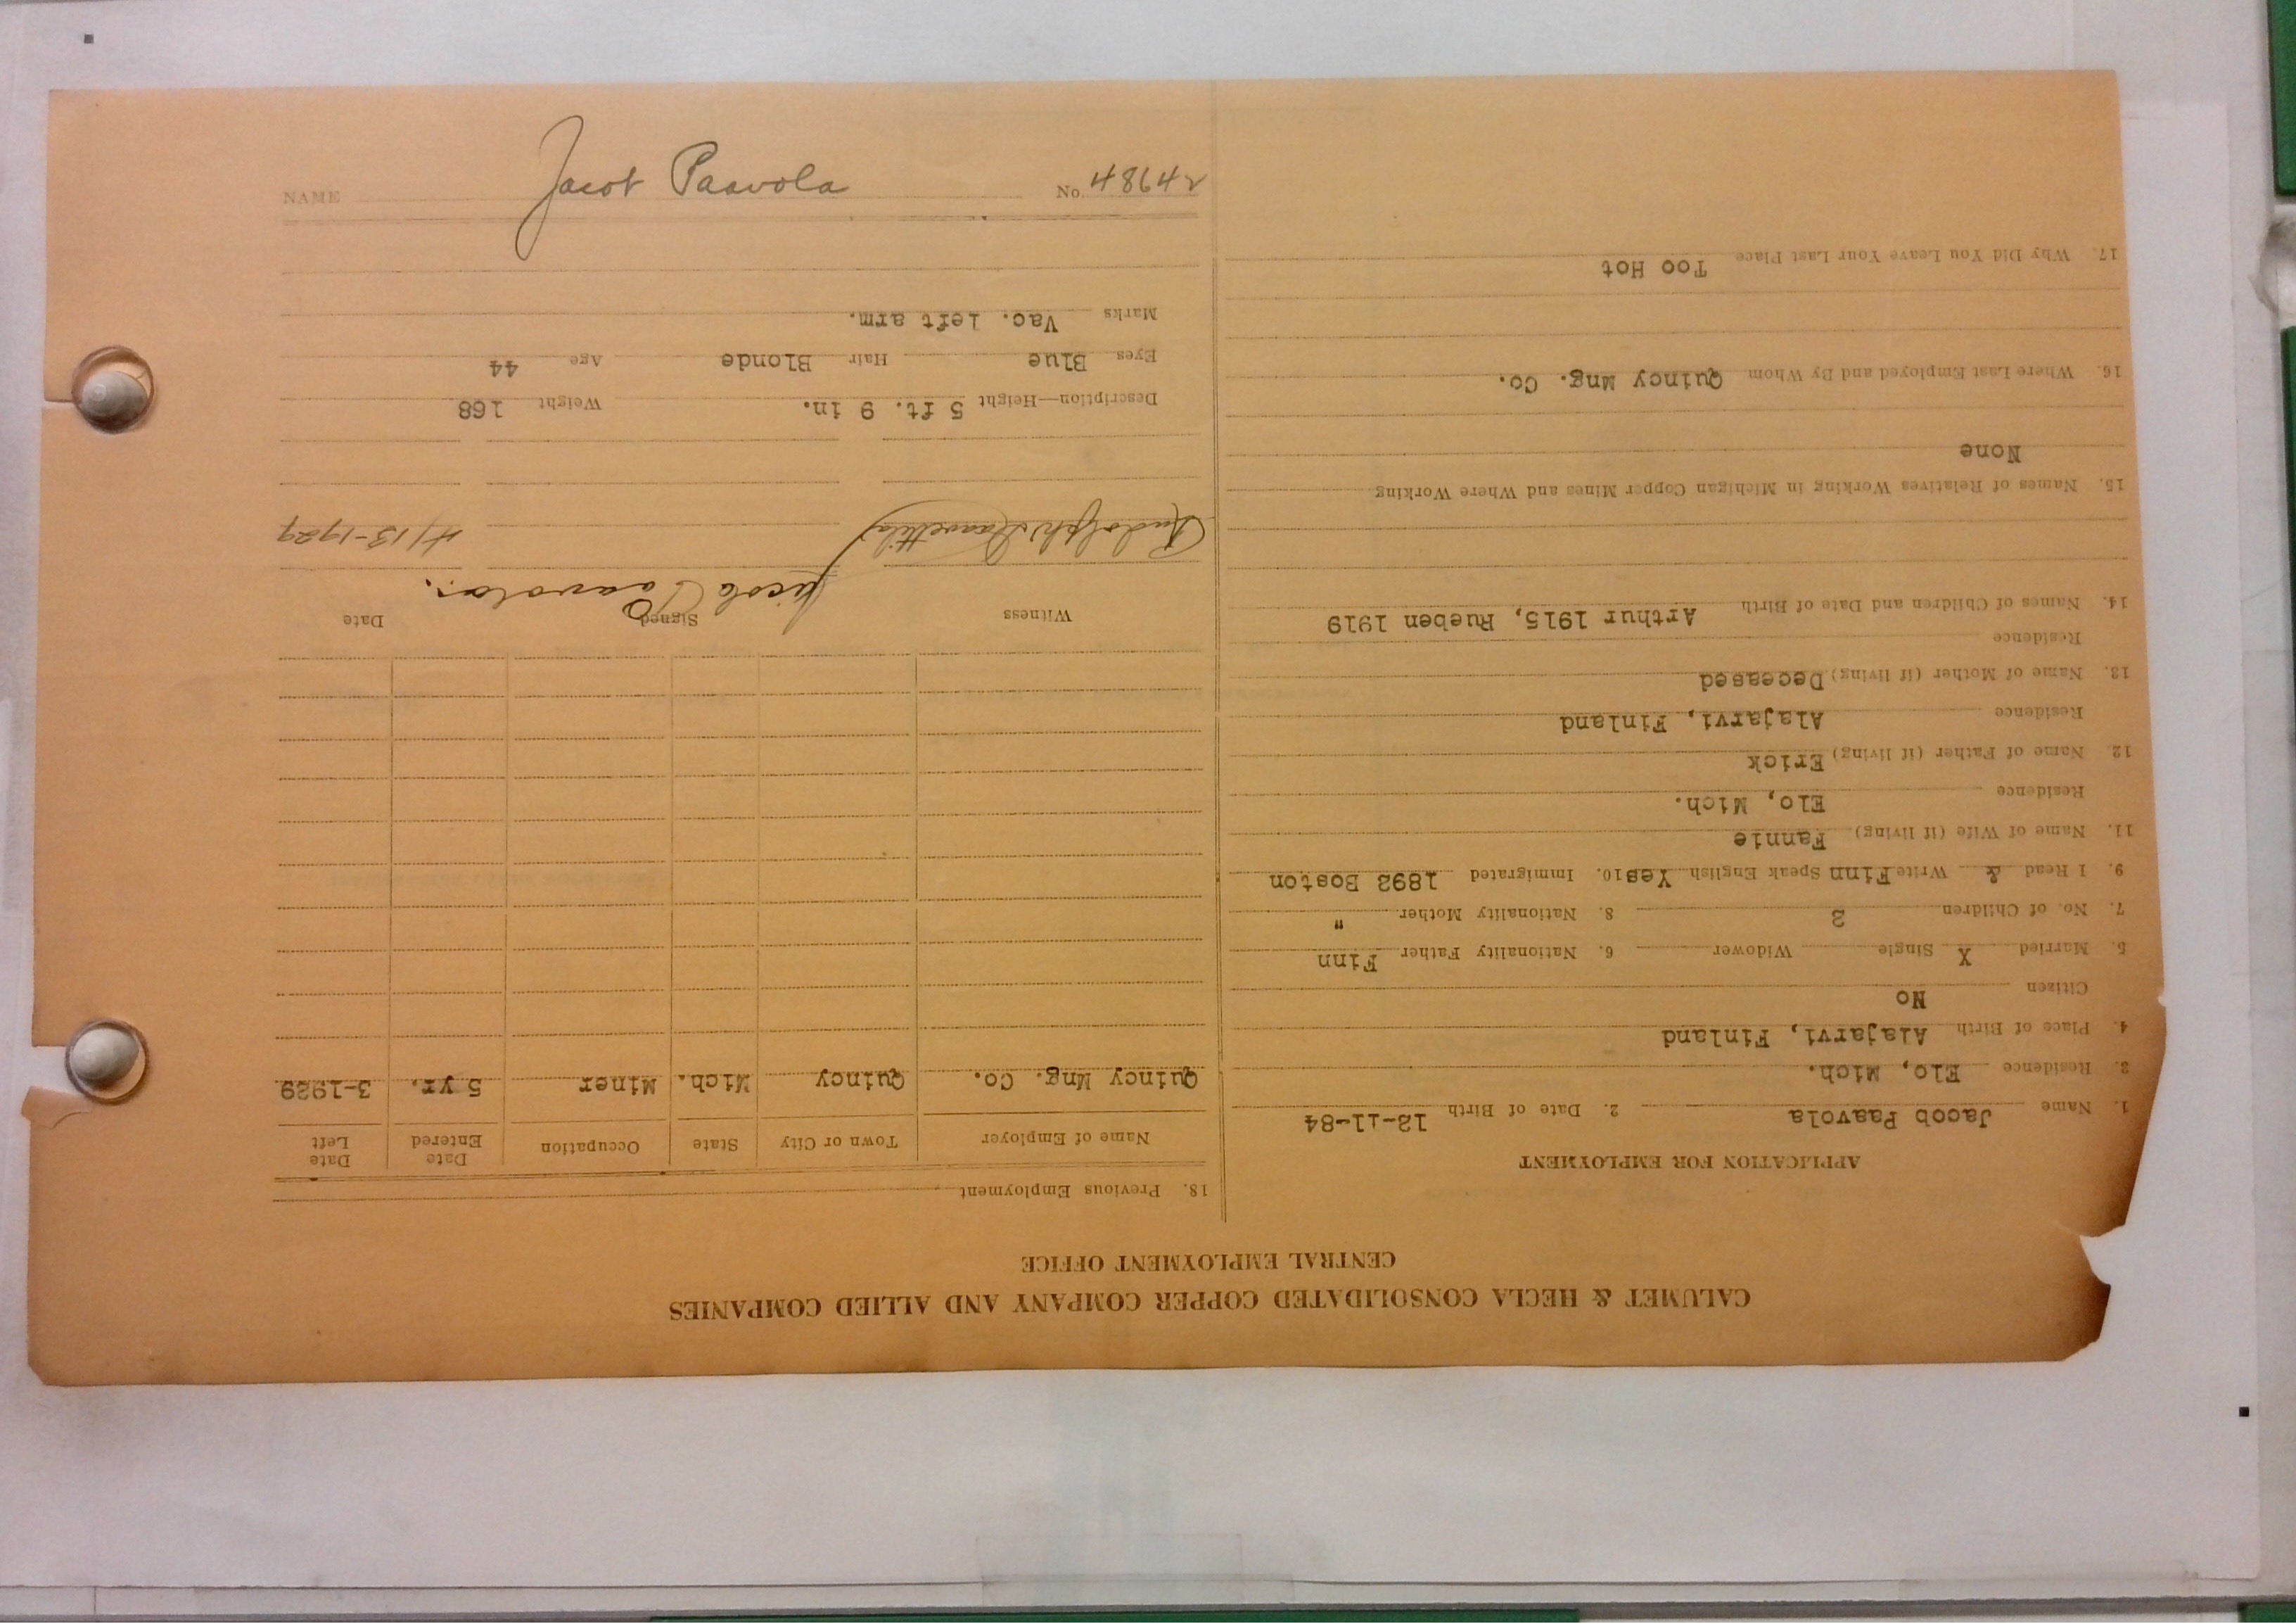 CALUMET & HECLA CONSOLIDATED COPPER COMPANY AND ALLIED COMPANIES
CENTRAL EMPLOYMENT OFFICE
APPLICATION FOR EMPLOYMENT
1. Name Jacob Paavola 2. Date of Birth 12-11-84
3. Residence Elo, Mich.
4. Place of Birth Alajarvi, Finland
Citizen No
5. Married X Single Widower 6. Nationality Father Finn
7. No. of Children 2 8. Nationality Mother "
9. I Read & Write Finn Speak English Yes 10. Immigrated 1892 Boston
11. Name of Wife (if living) Fannie
Residence Elo, Mich.
12. Name of Father (if living) Erick
Residence Alajarvi, Finland
13. Name of Mother (if living) Deceased
Residence
14. Names of Children and Date of Birth Arthur 1915, Rueben 1919
15. Names of Relatives Working in Michigan Copper Mines and Where Working
None
16. Where Last Employed and By Whom Quincy Mng. Co.
17. Why Did You Leave Your Last Place Too Hot
18. Previous Employment
Name of Employer Town or City State Occupation Date Entered Date Left
Quincy Mng. Co. Quincy Mich. Miner 5 yr. 3-1929
Witness Signed Date
Rudolph Jacob Paavola. 4/13-1929
Description—Height 5 ft. 9 in. Weight 168
Eyes Blue Hair Blonde Age 44
Marks Vac. left arm.
NAME Jacob Paavola No. 48642